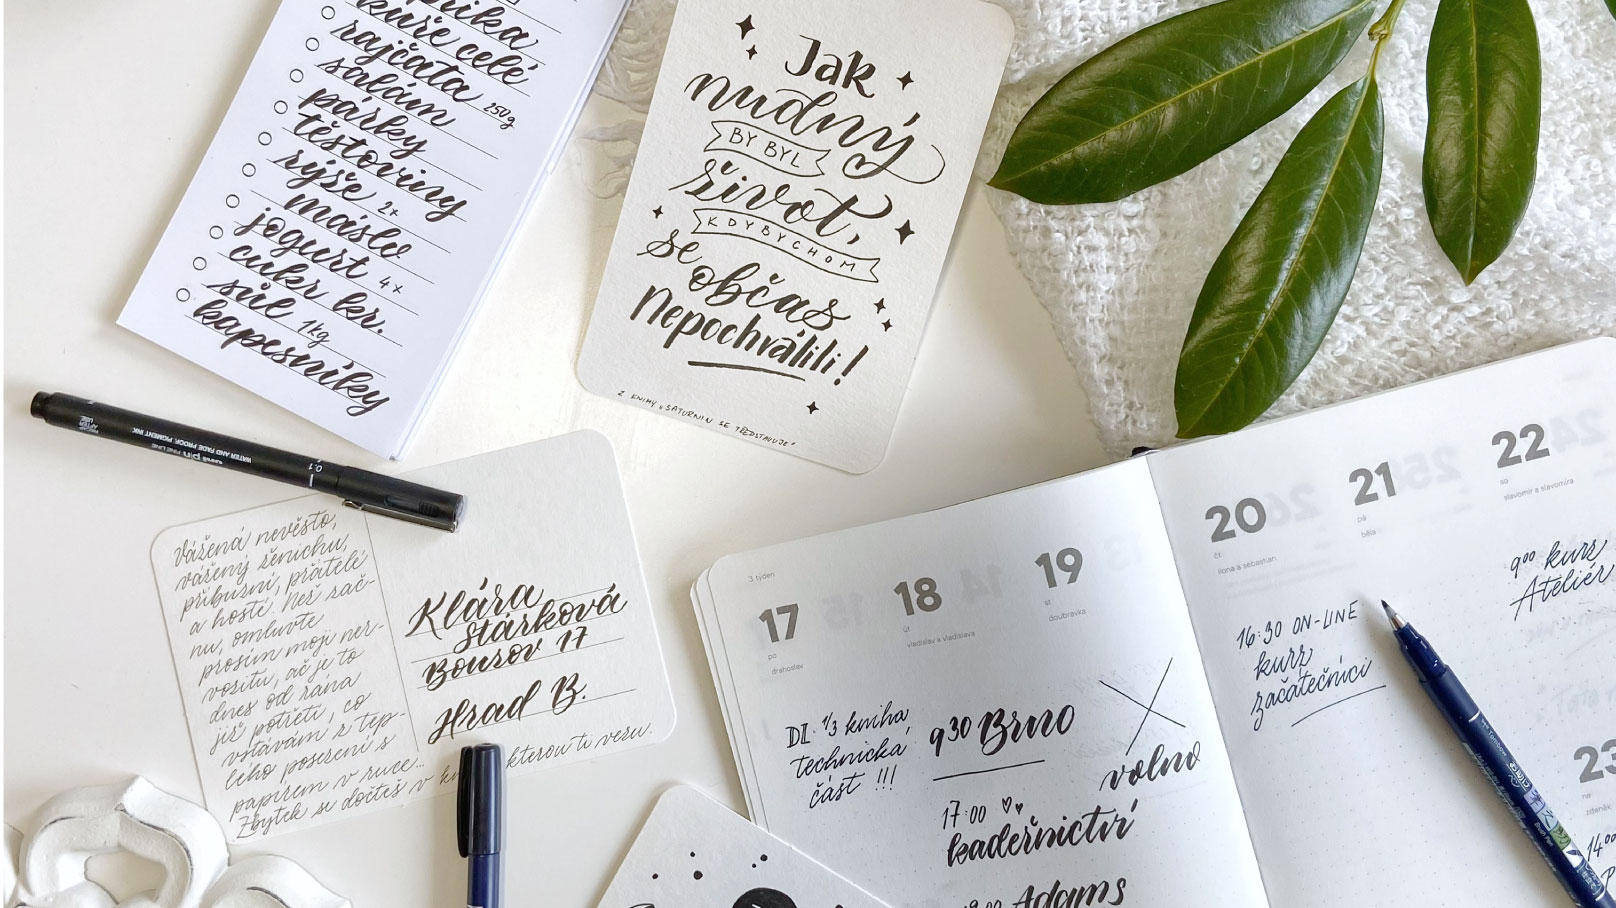 kuře celé
rajčata 250g
salám
párky
těstoviny
rýže 2x
máslo
jogurt 4x
cukr kr.
sůl 1kg
kapesníky
Jak
nudný
BY BYL
život,
KDYBYCHOM
se
občas
Nepochválili!
Z KNIHY „SATURNIN SE
WATER AND FADE PROOF, PIGMENT INK
uni pin FINE LINE
0.1
Vážená nevěsto,
vážený ženichu,
příbuzní, přátelé
a hosté. Než zač-
nu, omluvte
prosím moji ner-
vozitu, ač je to
dnes od rána
již potřetí, co
vstávám z tep-
lého posezení s
papírem v ruce...
Zbytek se dočteš v
kterou ti vezu.
Klára
stárková
Bouzov 17
Hrad B.
3 týden
17
po
drahoslav
DI. 1/3 kniha
technická
část !!!
18
út
vladislav a vladislava
9 30 Brno
17:00
kadeřnictví
19:00 Adams
19
st
doubravka
volno
20
čt
ilona a sebastian
16:30 ON-LINE
kurz
začátečníci
21
pá
běla
22
so
slavomír a slavomíra
9 00 kurz
Ateliér
23
ne
zdeněk
14 00
Tombow